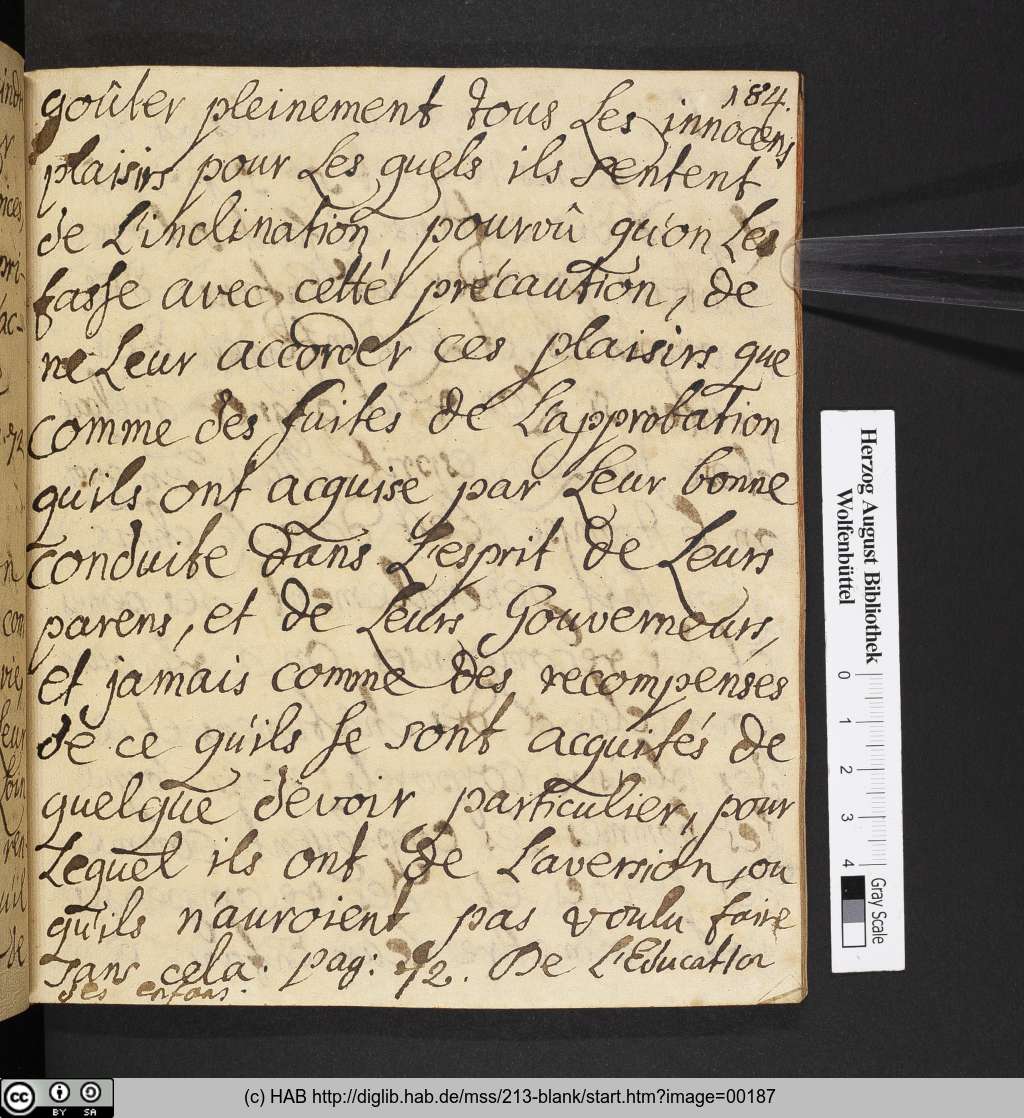 184.
goûter pleinement tous Les innocens
plaisirs pour Les quels ils sentent
de L'inclination, pourvû qu'on Les
fasse avec cette précaution, de
ne Leur accorder ces plaisirs que
comme des suites de L'approbation
qu'ils ont acquise par Leur bonne
conduite dans L'esprit de Leurs
parens, et de Leurs Gouverneurs,
et jamais comme des recompenses
de ce qu'ils se sont acquités de
quelque devoir particulier, pour
Lequel ils ont de L'aversion, ou
qu'ils n'auroient pas voulu faire
sans cela. pag: 72. De L'Education
des enfans.
Herzog August Bibliothek
Wolfenbüttel
0 1 2 3 4
Gray Scale
(c) HAB http://diglib.hab.de/mss/213-blank/start.htm?image=00187
cc BY SA